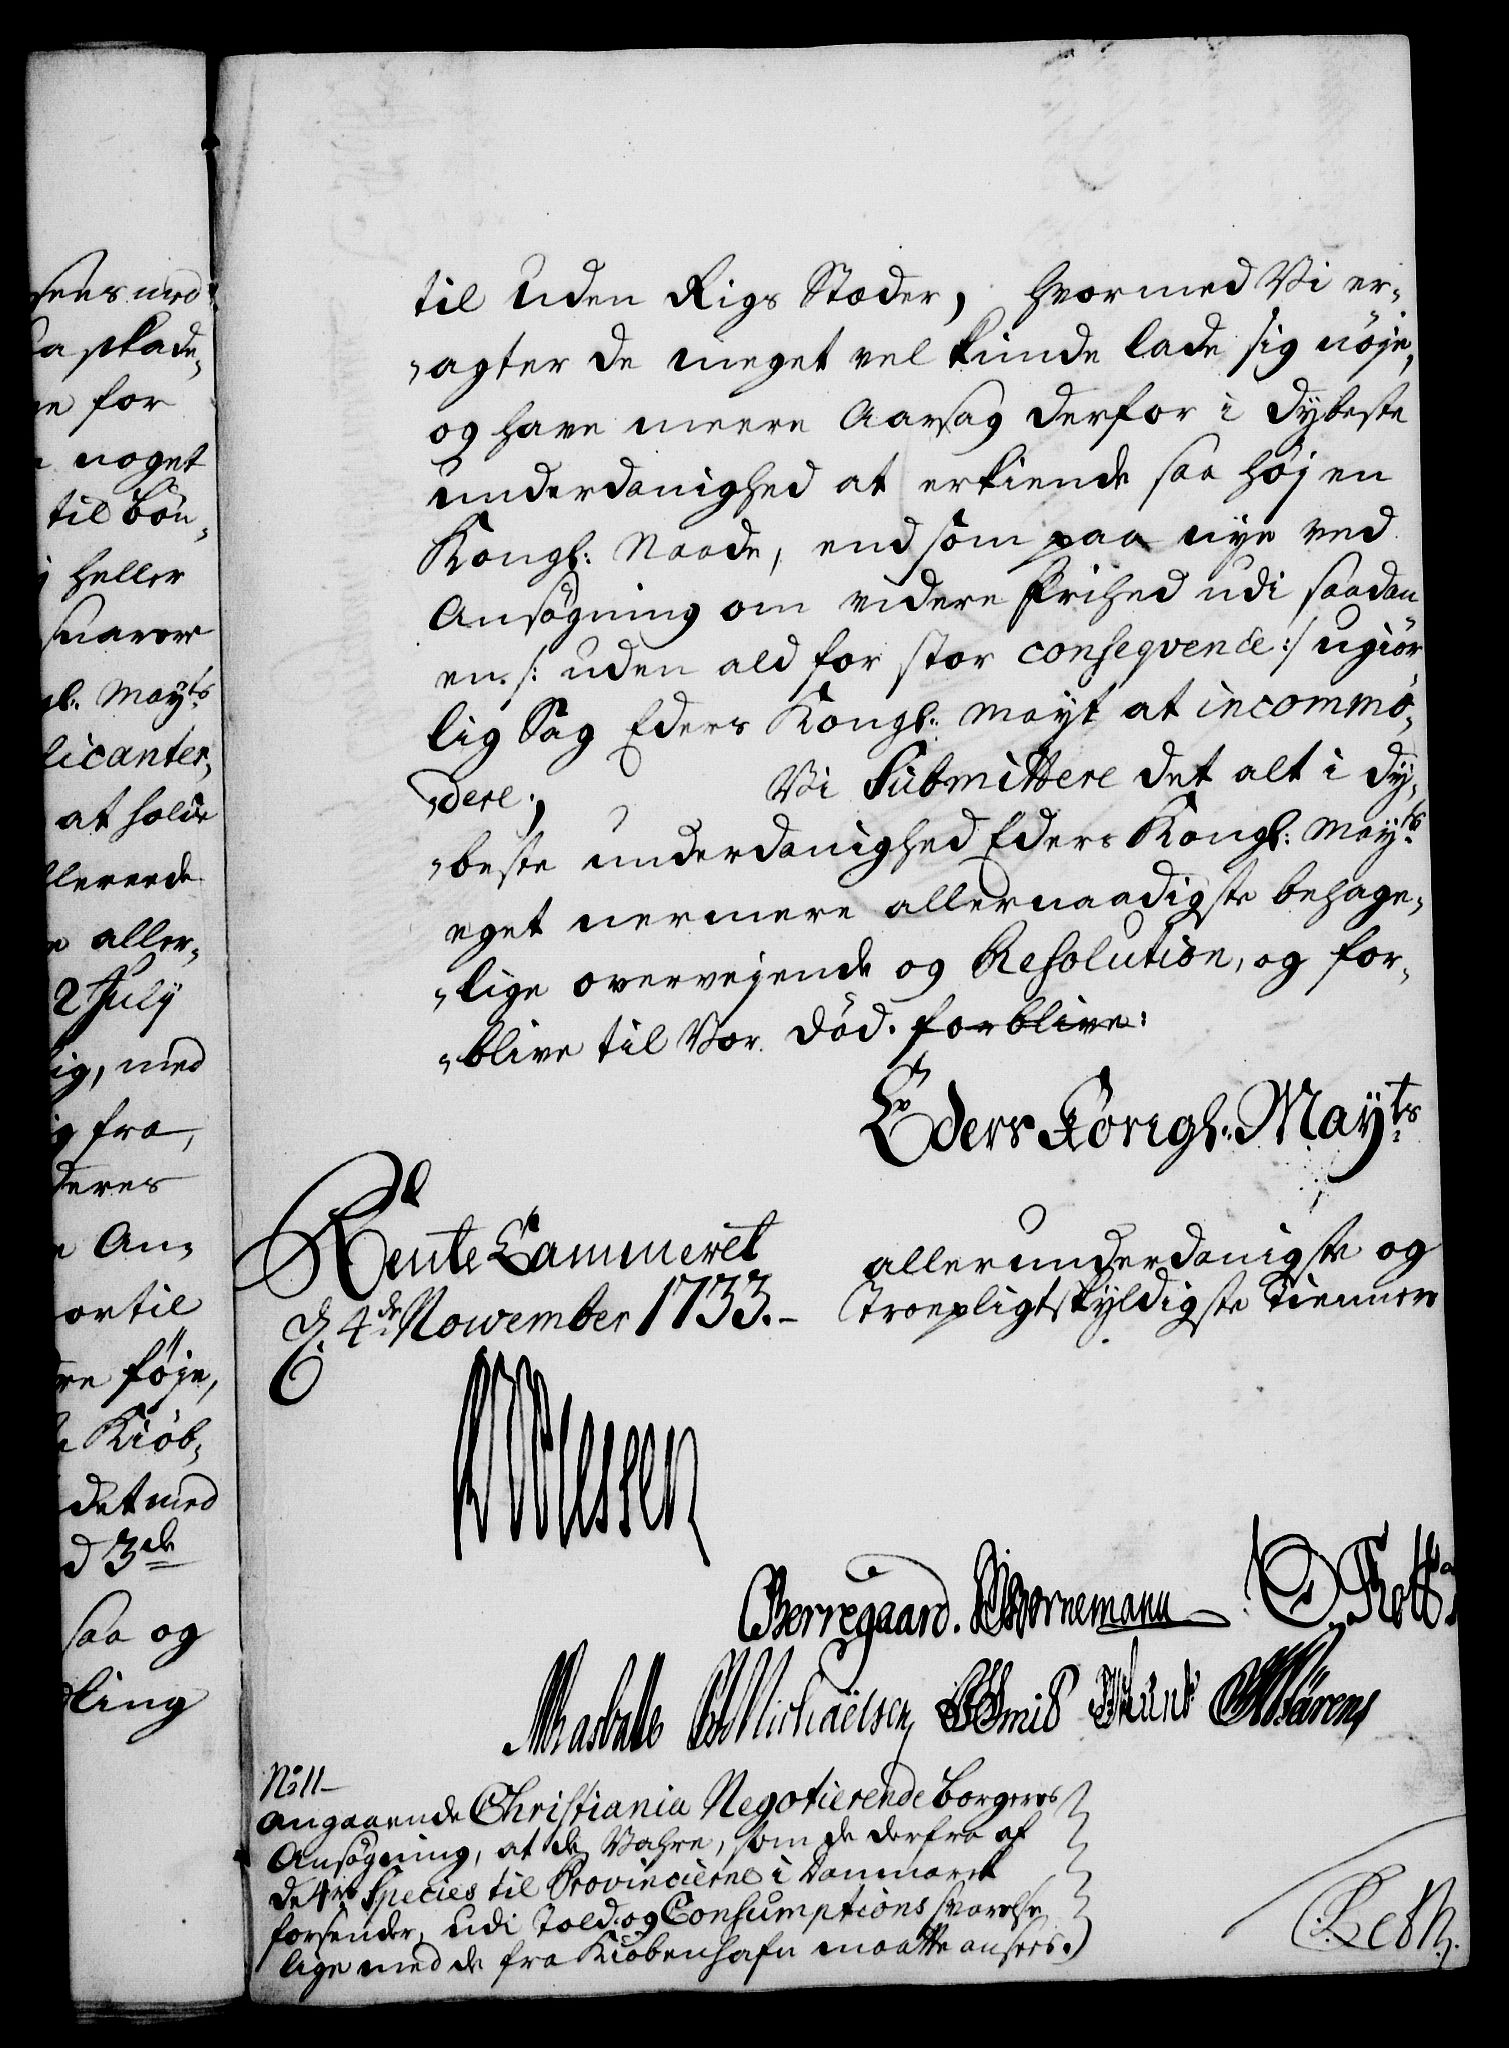 sees med
saa skade,
for
noget
til Bøn,
heller
svarer
gl. Mayts
licanter,
at holde
llerede
aller,
2 July
lig, med
fra,
deres
An,
ortil
føje,
Kiøb,
det med
d 3de
saa og
dling
til Uden Rigs Stæder, hvormed Vi er,
„agter de meget vel kunde lade sig nøje,
og have meere Aarsag derfor i dybeste
underdanighed at erkiende saa høj en
Kongl: Naade, end som paa nye ved
Ansøgning om videre frihed udi saadan
en /: uden ald for stor conseqvence :/ ugiør,
lig Sag Eders Kongl: Mayt at incommo,
„dere, Vi Submittere det alt i dy,
„beste underdanighed Eders Kongl: Mayts
eget nermere allernaadigste behage,
„lige overvejende og Resolution, og for,
„blive til Vor Død. forblive:
Eders Kongl: Mayts
Rente Cammeret
d 4de November 1733.
allerunderdanigste og
Troepligtskyldigste Tienner
Plessen
Berregaard. Bornemann O Thott
M Basballe Michaelsen Smid Munk Bärens
No 11
angaaende Christiania Negotierende Borgeres
Ansøgning, at de Vahre, som de derfra af
de 4re Species til Provincierne i Danmarck
forsender, udi Told og Consumptions svarelse
lige med de fra Kiøbenhafn maatte ansees.